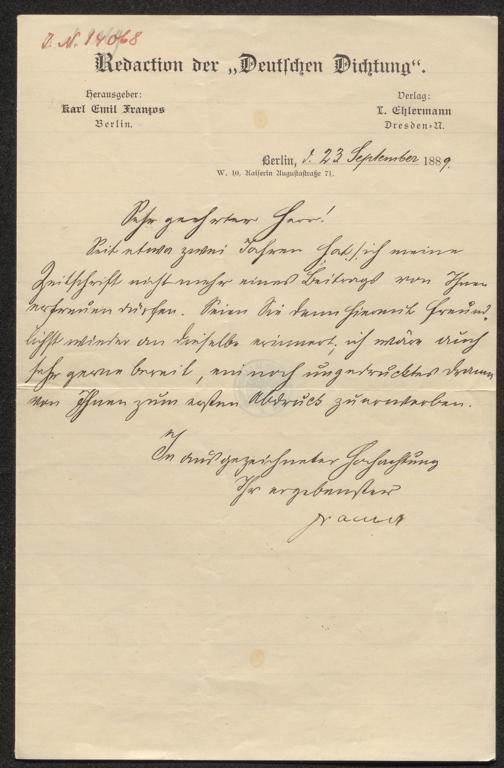 J. N. 14068
Redaction der „Deutschen Dichtung“.
Herausgeber:
Karl Emil Franzos
Berlin.
Verlag:
L. Ehlermann
Dresden-N.
Berlin, d. 23 September 1889.
W. 10, Kaiserin Augustastraße 71.
Sehr geehrter Herr!
Seit etwa zwei Jahren hat sich meine
Zeitschrift nicht mehr eines Beitrags von Ihnen
erfreuen dürfen. Seien Sie denn hiermit freund-
lichst wieder an dieselbe erinnert, ich wäre auch
sehr gerne bereit, ein noch ungedrucktes Drama
von Ihnen zum ersten Abdruck zu erwerben.
In ausgezeichneter Hochachtung
Ihr ergebenster
Franzos